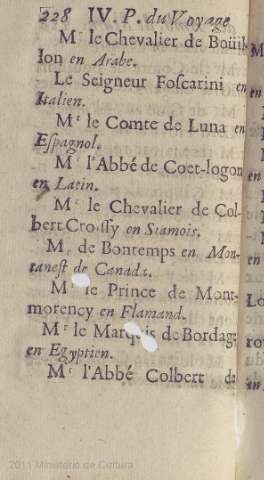 228 IV. P. du Voyage
Mr le Chevalier de Boüil-
lon en Arabe.
Le Seigneur Foscarini en
Italien.
Mr le Comte de Luna en
Espagnol.
Mr l'Abbé de Coet-logon
en Latin.
Mr le Chevalier de Col-
bert Croissy en Siamois.
Mr de Bontemps en Mon-
tanest de Canada.
Mr le Prince de Mont-
morency en Flamand.
Mr le Marquis de Bordage
en Egyptien.
Mr l'Abbé Colbert de
2011 Ministério de Cultura